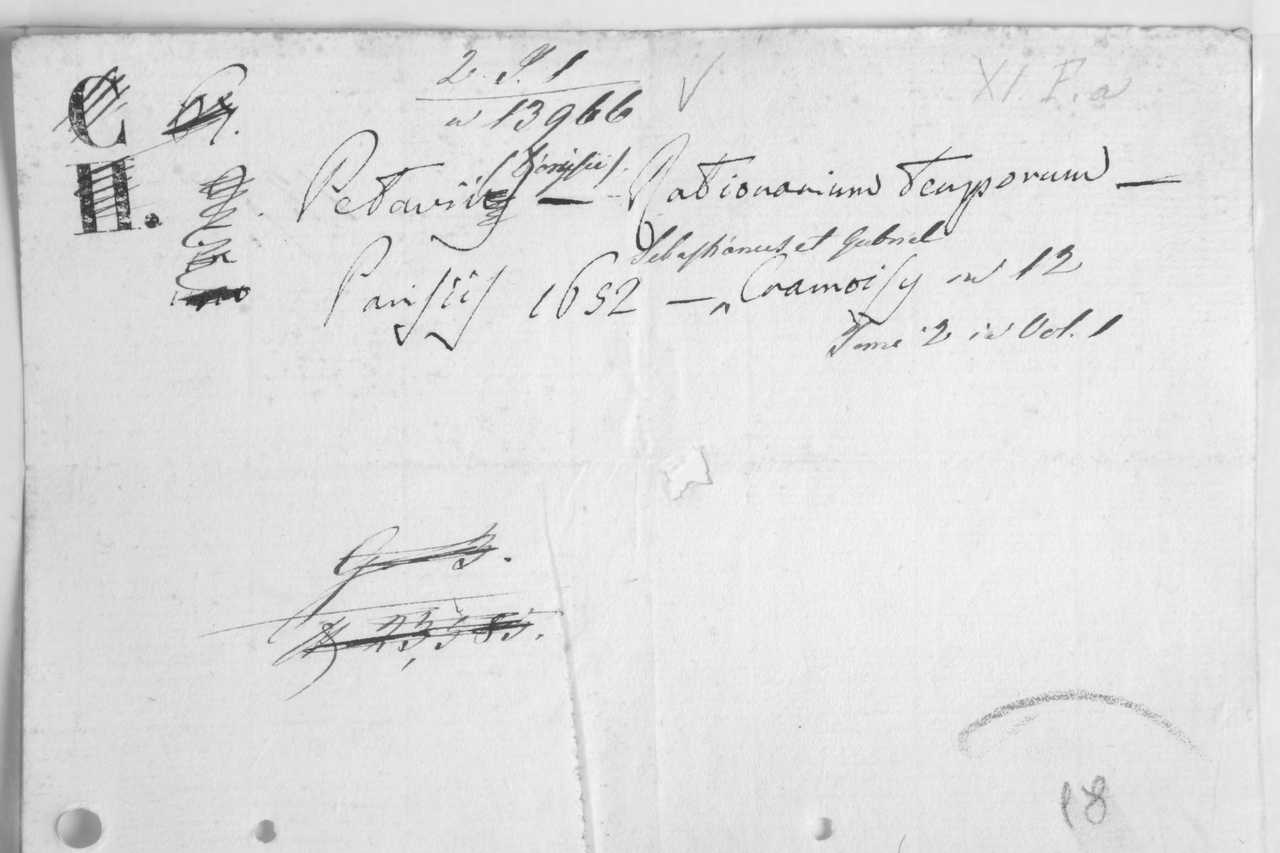 C
H.
2. P. 1
a 13966
V
XI E. a
Petavii (Dionisii) — Rationarium temporum —
Parisiis 1652 — Sebastianus et Gabriel Cramoisy in 12
Tome 2 in Vol. 1
G 3.
23,383.
18